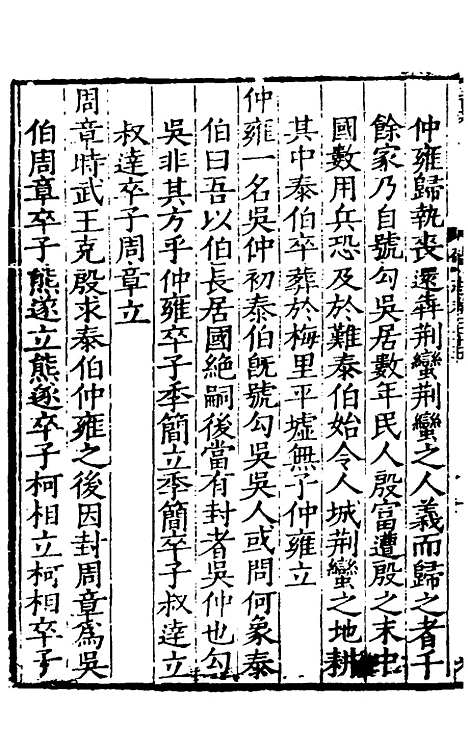 仲雍歸執喪還犇荆蠻荆蠻之人義而歸之者千
餘家乃自號勾吳居數年民人殷富遭殷之末中
國數用兵恐及於難泰伯始令人城荆蠻之地耕
其中泰伯卒葬於梅里平墟無子仲雍立
仲雍一名吳仲初泰伯旣號勾吳吳人或問何象泰
伯曰吾以伯長居國絕嗣後當有封者吳仲也勾
吳非其方乎仲雍卒子季簡立季簡卒子叔達立
叔達卒子周章立
周章時武王克殷求泰伯仲雍之後因封周章爲吳
伯周章卒子熊遂立熊遂卒子柯相立柯相卒子